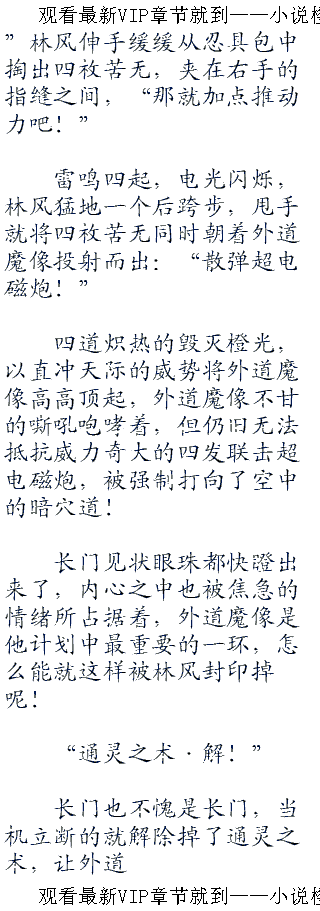 观看最新VIP章节就到——小说
”林风伸手缓缓从忍具包中
掏出四枚苦无，夹在右手的
指缝之间，“那就加点推动
力吧！”
雷鸣四起，电光闪烁，
林风猛地一个后跨步，甩手
就将四枚苦无同时朝着外道
魔像投射而出：“散弹超电
磁炮！”
四道炽热的毁灭橙光，
以直冲天际的威势将外道魔
像高高顶起，外道魔像不甘
的嘶吼咆哮着，但仍旧无法
抵抗威力奇大的四发联击超
电磁炮，被强制打向了空中
的暗穴道！
长门见状眼珠都快蹬出
来了，内心之中也被焦急的
情绪所占据着，外道魔像是
他计划中最重要的一环，怎
么能就这样被林风封印掉
呢！
“通灵之术·解！”
长门也不愧是长门，当
机立断的就解除掉了通灵之
术，让外道
观看最新VIP章节就到——小说